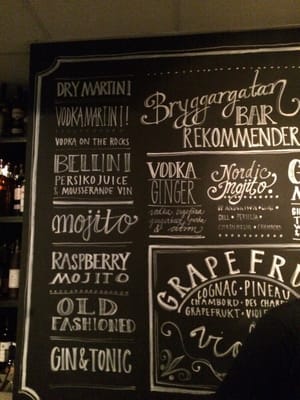 DRY MARTINI
VODKA MARTINI!
VODKA ON THE ROCKS
BELLINI
PERSIKOJUICE
& MOUSSERANDE VIN
mojito
RASPBERRY
MOJITO
OLD
FASHIONED
GIN & TONIC
Bryggargatan
BAR
REKOMMENDER
VODKA
GINGER
vodka
& citron
Nordic
Mojito
DILL · PERSILJA
GRAPEFRU
COGNAC · PINEAU
CHAMBORD · DES CHARE
GRAPEFRUKT · VIOL